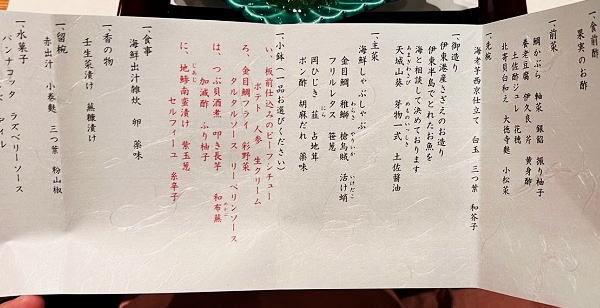 一、食前酢
果実のお酢
一、前菜
鯛かぶら　軸菜　銀餡　振り柚子
養老豆腐　伊久良　芹　黄身酢
土佐酢ジュレ　花穂
北寄貝白和え　大徳寺麩　小松菜
一、先椀
海老芋西京仕立て　白玉　三つ葉　和芥子
一、御造り
伊東港産さざえのお造り
伊東半島でとれたお魚を
海と相談して決めております
天城山葵　芽物一式　土佐醤油
一、主菜
海鮮しゃぶしゃぶ
金目鯛　稚鰤　槍烏賊　活け蛸
フリルレタス　笹葱
岡ひじき　韮　占地茸
ポン酢　胡麻だれ　薬味
一、小鉢（一品お選びください）
い、板前仕込みのビーフシチュー
ポテト　人参　生クリーム
ろ、金目鯛フライ　彩野菜
タルタルソース　リーペリンソース
は、つぶ貝酒煮　叩き長芋　和布蕪
加減酢　ふり柚子
に、地鯵南蛮漬け　紫玉葱
セルフィーユ　糸辛子
一、食事
海鮮出汁雑炊　卵　薬味
一、香の物
壬生菜漬け　蕪糠漬け
一、留椀
赤出汁　小巻麩　三つ葉　粉山椒
一、水菓子
パンナコッタ　ラズベリーソース